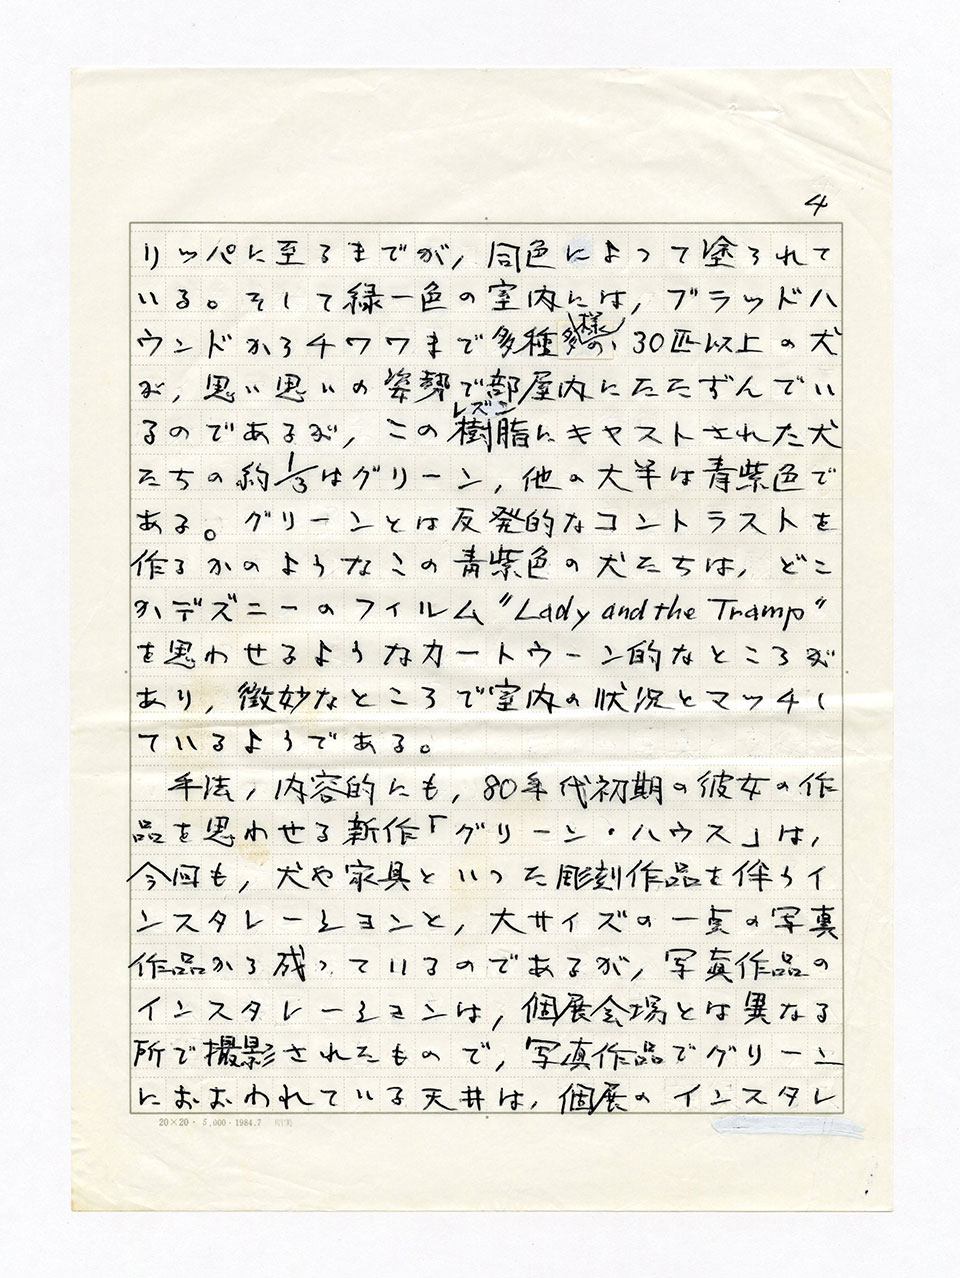 4
リッパに至るまでが，同色によって塗られて
いる。そして緑一色の室内には，ブラッドハ
ウンドからチワワまで多種多様の，30匹以上の犬
が，思い思いの姿勢で部屋内にたたずんでい
レズン
るのであるが，この樹脂にキャストされた犬
たちの約1/3はグリーン，他の大半は青紫色で
ある。グリーンとは反発的なコントラストを
作るかのようなこの青紫色の犬たちは，どこ
かデズニーのフィルム"Lady and the Tramp"
を思わせるようなカートウーン的なところが
あり，微妙なところで室内の状況とマッチし
ているようである。
手法，内容的にも，80年代初期の彼女の作
品を思わせる新作「グリーン・ハウス」は，
今回も，犬や家具といった彫刻作品を伴うイ
ンスタレーションと，大サイズの一点の写真
作品から成っているのであるが，写真作品の
インスタレーションは，個展会場とは異なる
所で撮影されたもので，写真作品でグリーン
におおわれている天井は，個展のインスタレ
20×20・5,000・1984.7